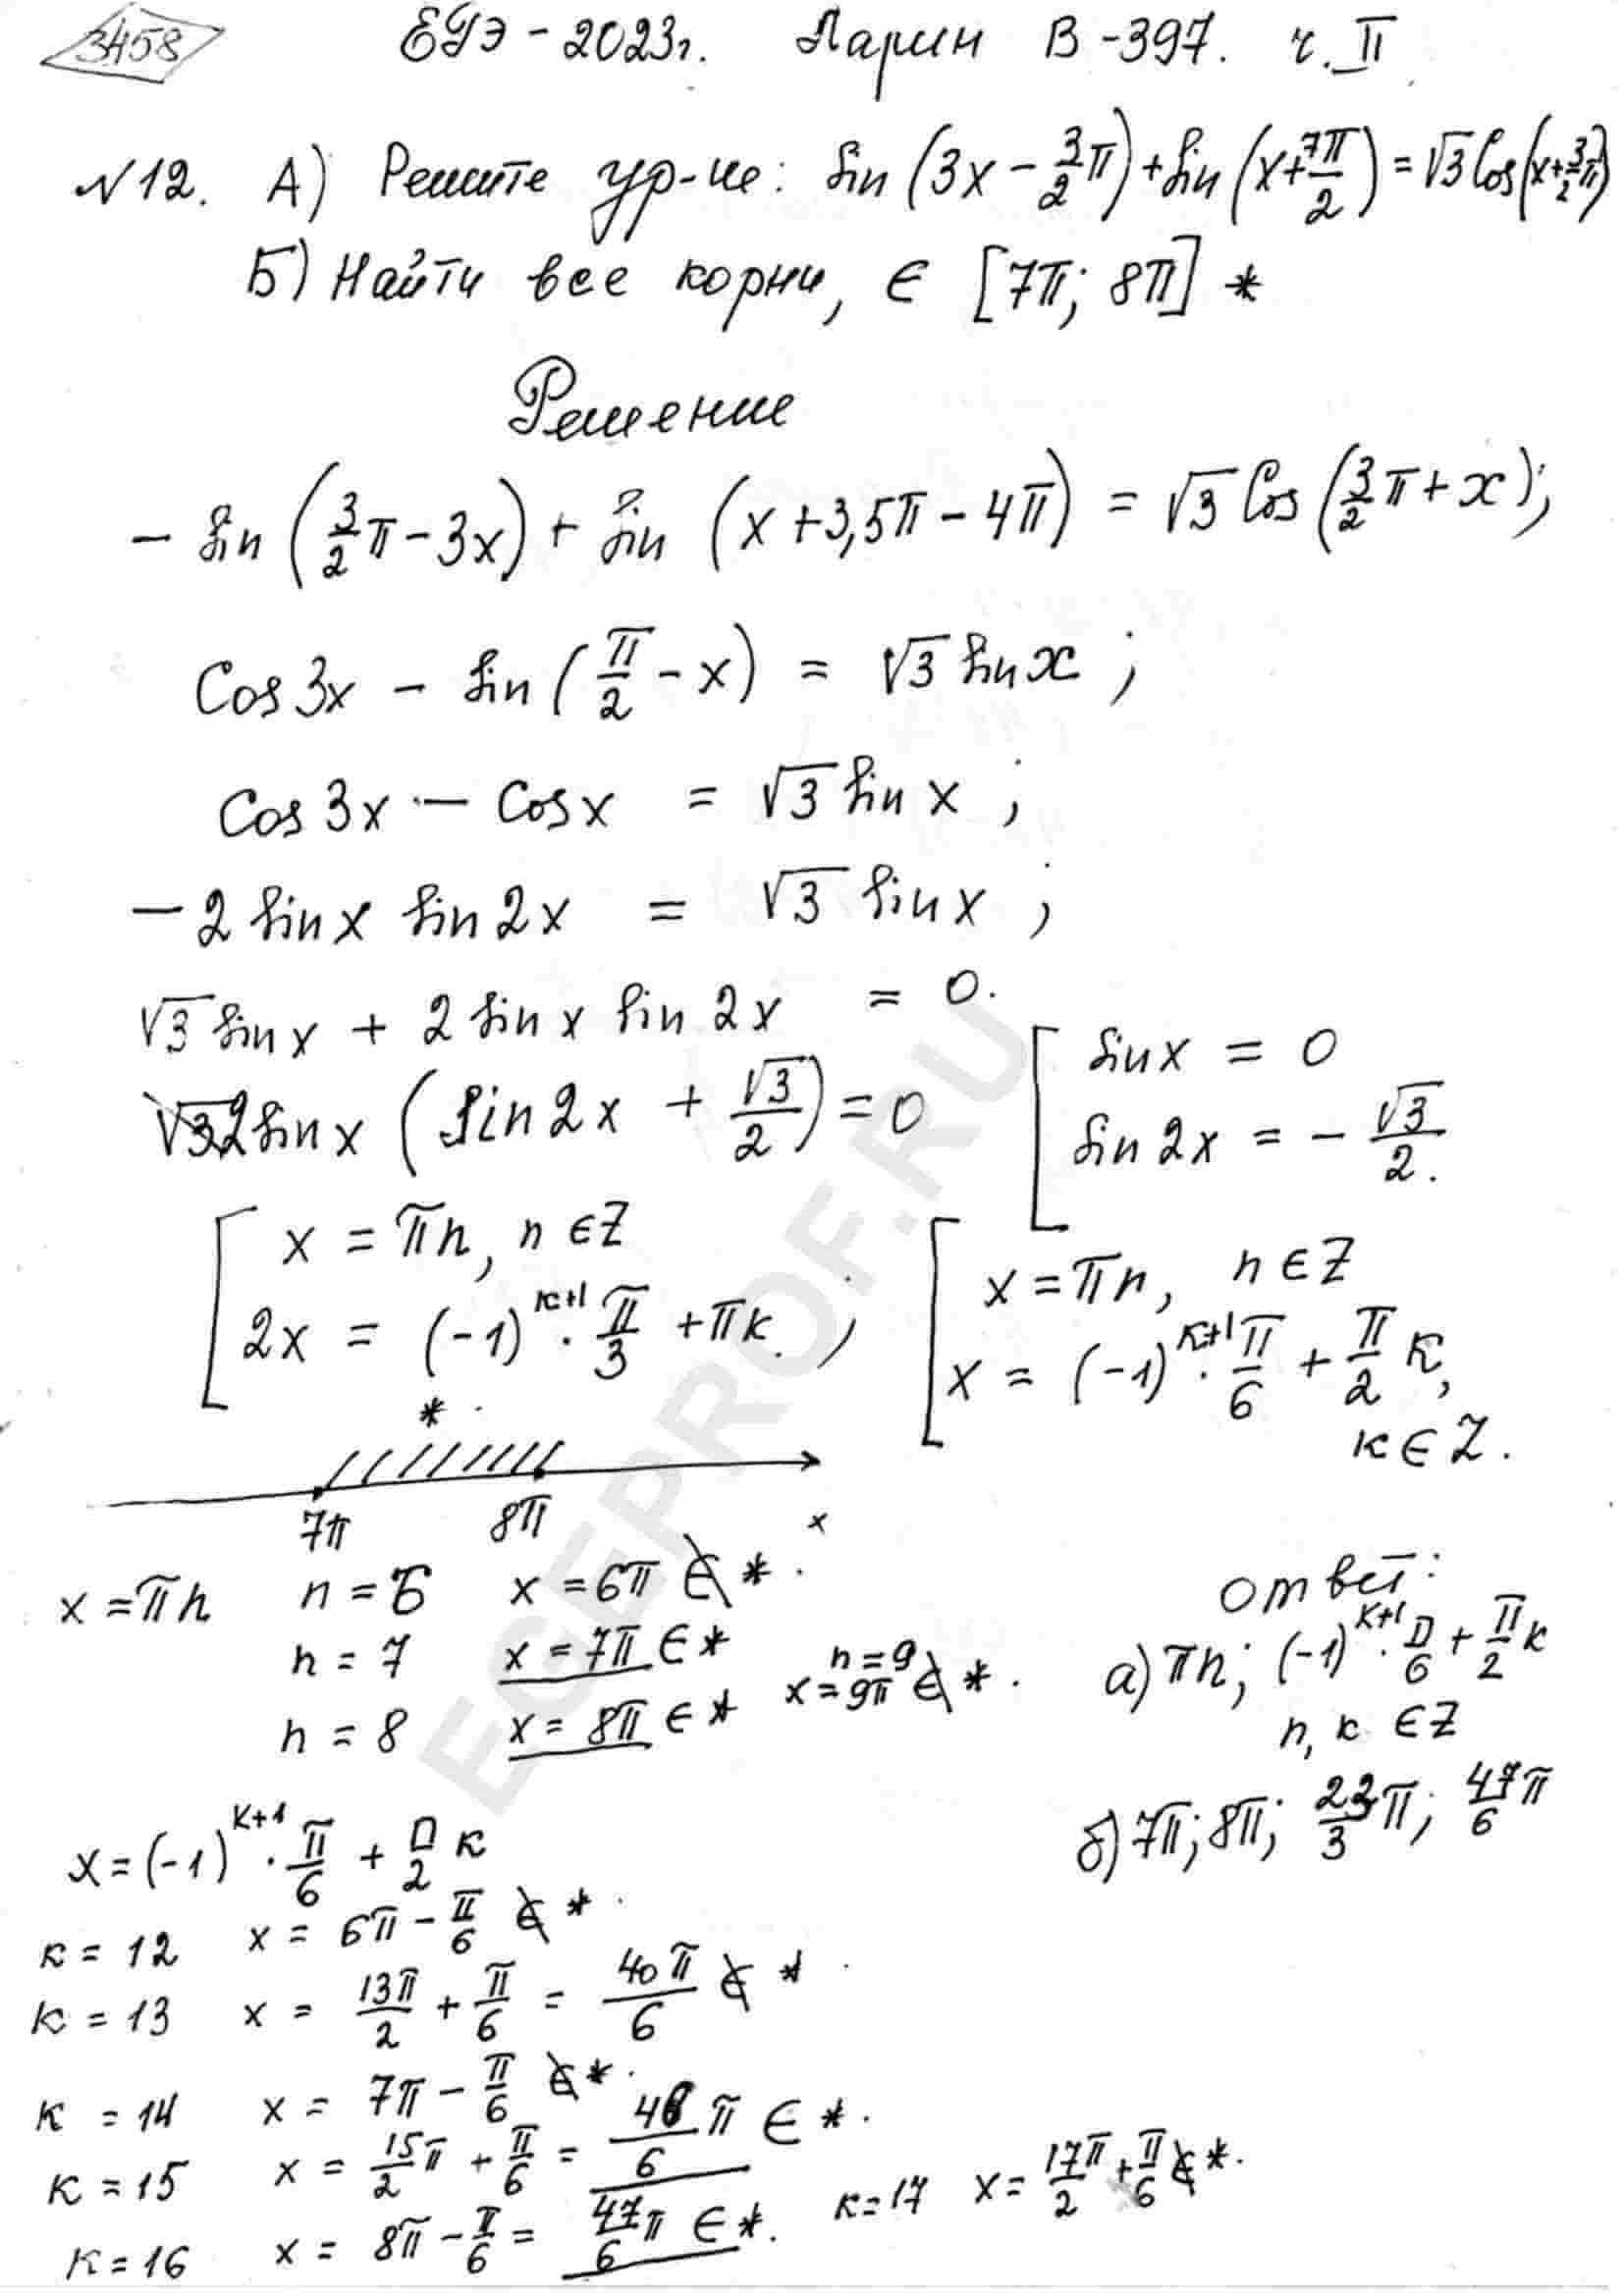 3458
ЕГЭ - 2023г. Ларин В - 397. ч. II
№12. А) Решите ур-ие: Sin (3x - 3/2 π) + Sin (x + 7π/2) = √3 Cos (x + 3/2 π)
Б) Найти все корни, ∈ [7π; 8π] *
Решение
- Sin (3/2 π - 3x) + Sin (x + 3,5π - 4π) = √3 Cos (3/2 π + x);
Cos 3x - Sin (π/2 - x) = √3 Sin x;
Cos 3x - Cos x = √3 Sin x;
- 2 Sin x Sin 2x = √3 Sin x;
√3 Sin x + 2 Sin x Sin 2x = 0.
2 Sin x (Sin 2x + √3/2) = 0
[ Sin x = 0
Sin 2x = - √3/2.
[ x = πn, n ∈ Z
2x = (-1)^(k+1) · π/3 + πk. ;
[ x = πn, n ∈ Z
x = (-1)^(k+1) · π/6 + π/2 k,
k ∈ Z.
*
7π 8π x
x = πn n = 6 x = 6π ∉ *.
n = 7 x = 7π ∈ *
n = 8 x = 8π ∈ * n = 9 x = 9π ∉ *.
Ответ:
а) πn; (-1)^(k+1) · π/6 + π/2 k
n, k ∈ Z
б) 7π; 8π; 23/3 π; 47/6 π
x = (-1)^(k+1) · π/6 + π/2 k
k = 12 x = 6π - π/6 ∉ *.
k = 13 x = 13π/2 + π/6 = 40π/6 ∉ *.
k = 14 x = 7π - π/6 ∉ *.
k = 15 x = 15/2 π + π/6 = 46/6 π ∈ *.
k = 16 x = 8π - π/6 = 47/6 π ∈ *.
k = 17 x = 17π/2 + π/6 ∉ *.
EGEPROF.RU